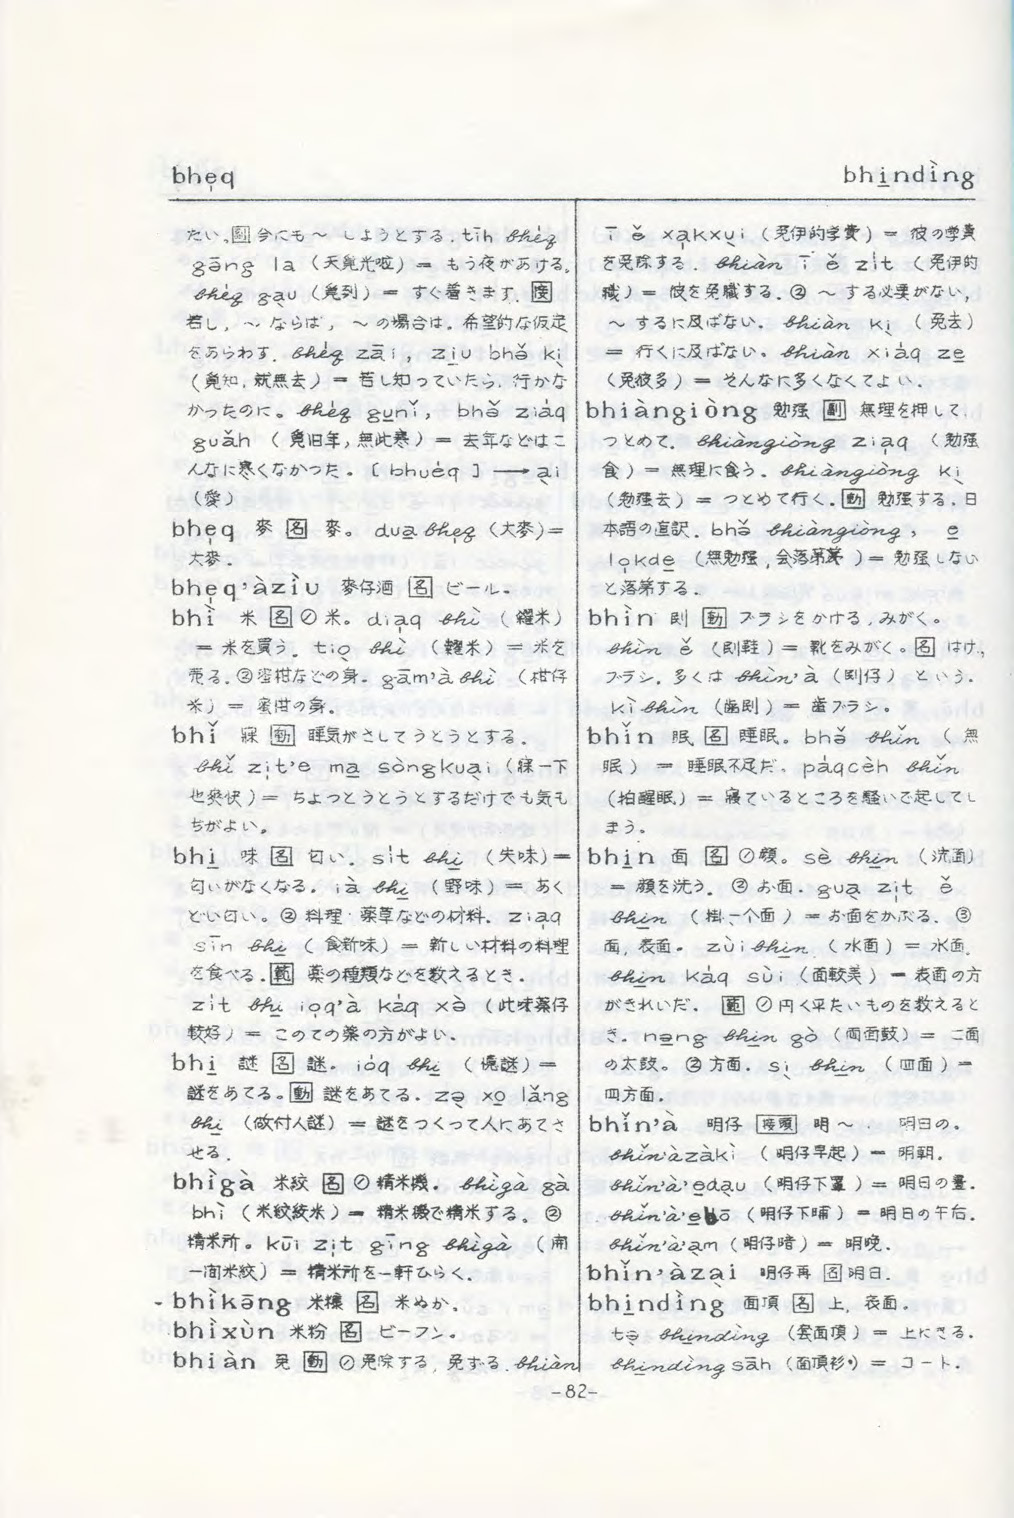 bhẹq
bhi̱ndìng
たい。副 今にも～しようとする. tīh bhéq
gāng la (天覓光啦) = もう夜があける。
bhéq gạu (覓到) = すぐ着きます. 接
若し, ～ならば, ～の場合は. 希望的な仮定
をあらわす. bhéq zāi, zịu bhǒ kị
(覓知, 就無去) = 若し知っていたら, 行かな
かったのに。bhéq gu̱nǐ, bhǒ ziáq
guǎh (覓旧年, 無此寒) = 去年などはこ
んなに寒くなかった。[bhuéq] → ại
(愛)
bhẹq 麥 名 麥。dua̱ bhẹq (大麥) =
大麥.
bhẹq'àzìu 麥仔酒 名 ビール.
bhì 米 名 ① 米。diạq bhì (糴米)
= 米を買う. tiọ bhì (糶米) = 米を
売る. ② 蜜柑などの身. gām'à bhì (柑仔
米) = 蜜柑の身.
bhǐ 寐 動 睡気がさしてうとうとする.
bhǐ zịt'e ma̱ sòngkuại (寐一下
也爽快) = ちょっとうとうとするだけでも気も
ちがよい。
bhi̱ 味 名 匂い. sit bhi̱ (失味) =
匂いがなくなる. ià bhi̱ (野味) = あく
どい匂い。② 料理・薬草などの材料. ziạq
sīn bhi̱ (食新味) = 新しい材料の料理
を食べる. 範 薬の種類などを数えるとき.
zit bhi̱ iọq'à káq xò (此味薬仔
較好) = このての薬の方がよい.
bhi̱ 謎 名 謎. ióq bhi̱ (憶謎) =
謎をあてる。動 謎をあてる. zọ xo̱ lǎng
bhi̱ (做付人謎) = 謎をつくって人にあてさ
せる.
bhìgà 米絞 名 ① 精米機. bhìgà gà
bhì (米絞絞米) = 精米機で精米する。②
精米所. kūi zịt gīng bhìgà (開
一間米絞) = 精米所を一軒ひらく.
bhìkāng 米糠 名 米ぬか.
bhìxùn 米粉 名 ビーフン.
bhiàn 免 動 ① 免除する, 免ずる. bhiàn
ī ě xạkxụi (免伊的学費) = 彼の学費
を免除する. bhiàn ī ě zit (免伊的
職) = 彼を免職する. ② ～する必要がない,
～するに及ばない. bhiàn kị (免去)
= 行くに及ばない。bhiàn xiáq ze̱
(免彼多) = そんなに多くなくてよい.
bhiàngiòng 勉强 副 無理を押して
つとめて. bhiàngiòng ziạq (勉强
食) = 無理に食う. bhiàngiòng kị
(勉强去) = つとめて行く. 動 勉强する. 日
本語の直訳. bhǒ bhiàngiòng, e̱
lọkde̱ (無勉强, 会落第) = 勉强しない
と落第する.
bhìn 刡 動 ブラシをかける, みがく。
bhìn ě (刡鞋) = 靴をみがく。名 はけ,
ブラシ. 多くは bhìn'à (刡仔) という.
kì bhìn (歯刡) = 歯ブラシ.
bhǐn 眠 名 睡眠。bhǒ bhǐn (無
眠) = 睡眠不足だ. páqcèh bhǐn
(拍醒眠) = 寝ているところを騒いで起してし
まう.
bhi̱n 面 名 ① 顔。sè bhi̱n (洗面)
= 顔を洗う. ② お面. guạ zịt ě
bhi̱n (掛一个面) = お面をかぶる. ③
面, 表面. zùi bhi̱n (水面) = 水面.
bhi̱n káq sùi (面較美) = 表面の方
がきれいだ. 範 ① 円く平たいものを数えると
き. nn̄g bhi̱n gò (両面鼓) = 二面
の太鼓. ② 方面. sị bhi̱n (四面) =
四方面.
bhǐn'à 明仔 接頭 明～ 明日の.
bhǐn'àzàkì (明仔早起) = 明朝.
bhǐn'à'e̱dạu (明仔下罩) = 明日の昼.
bhǐn'à'e̱bō (明仔下晡) = 明日の午后.
bhǐn'à'ạm (明仔暗) = 明晩.
bhǐn'àzại 明仔再 名 明日.
bhi̱ndìng 面頂 名 上, 表面.
tọ bhi̱ndìng (套面頂) = 上にきる.
bhi̱ndìng sāh (面頂衫) = コート.
-82-